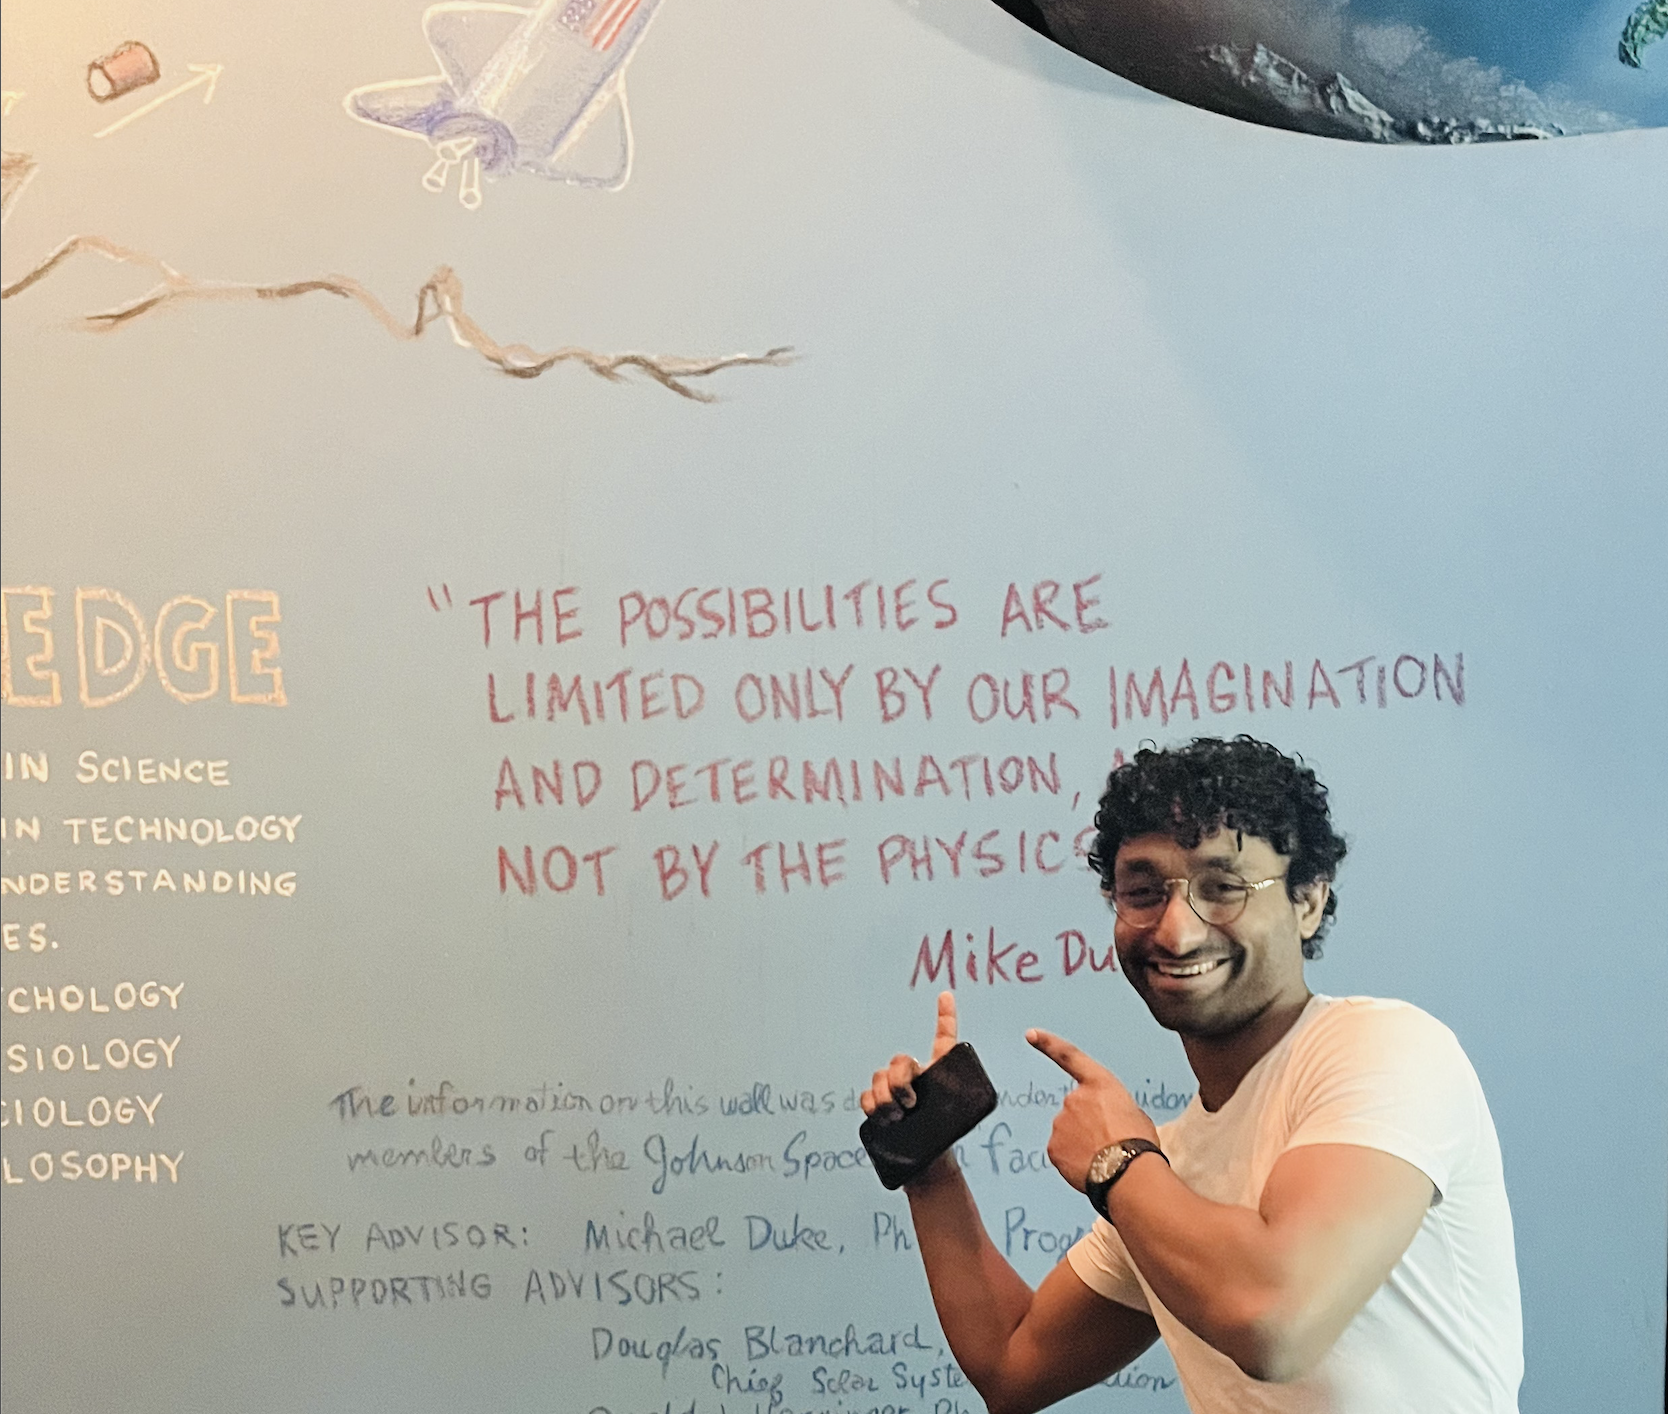 EDGE
IN SCIENCE
IN TECHNOLOGY
NDERSTANDING
ES.
CHOLOGY
SIOLOGY
CIOLOGY
LOSOPHY
"THE POSSIBILITIES ARE
LIMITED ONLY BY OUR IMAGINATION
AND DETERMINATION, A
NOT BY THE PHYSICS
Mike Du
The information on this wall was d nder th uidan
members of the Johnson Space n facu
KEY ADVISOR: Michael Duke, Ph Progr
SUPPORTING ADVISORS:
Douglas Blanchard,
Chief Solar Syste ation